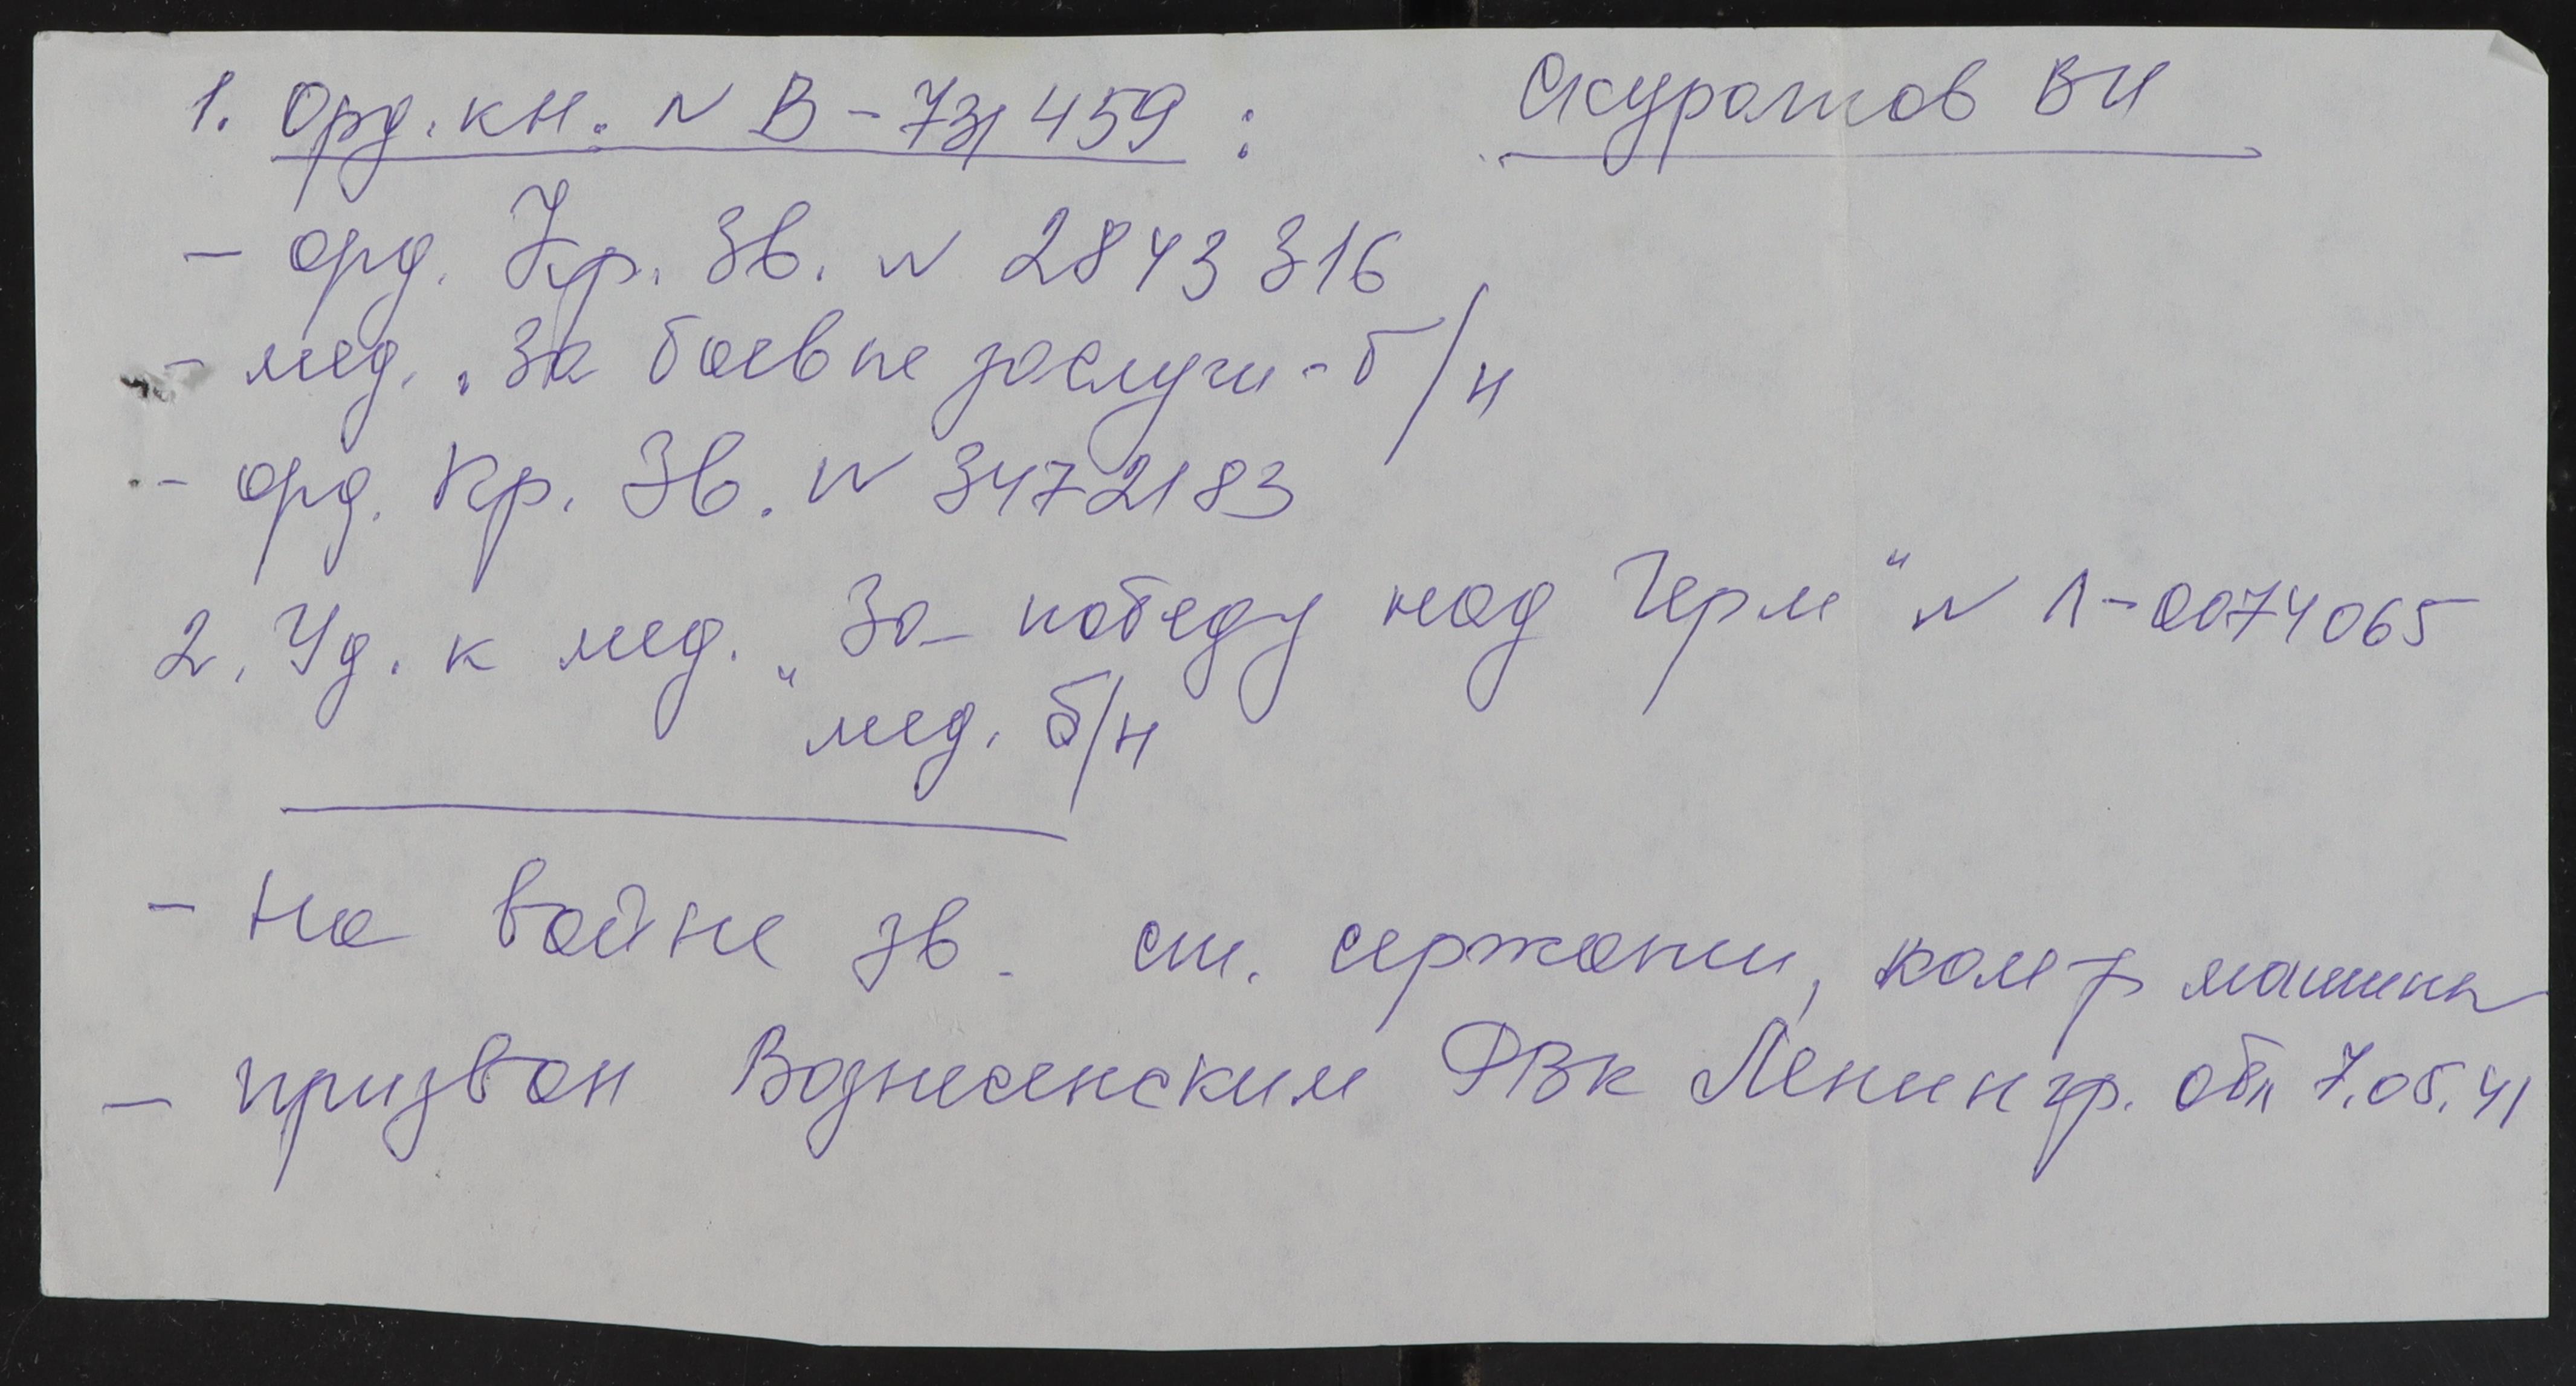 1. Орд. кн. N В-731459: Скуратов ВИ
- орд. Кр. Зв. N 2843316
- мед. „За боевые заслуги - б/н
- орд. Кр. Зв. N 3472183
2. Уд. к мед. „За победу над Герм" N Л-0074065
мед. б/н
- На войне зв. ст. сержант, ком-р машины
- призван Вознесенским РВК Ленингр. обл 7.05.41